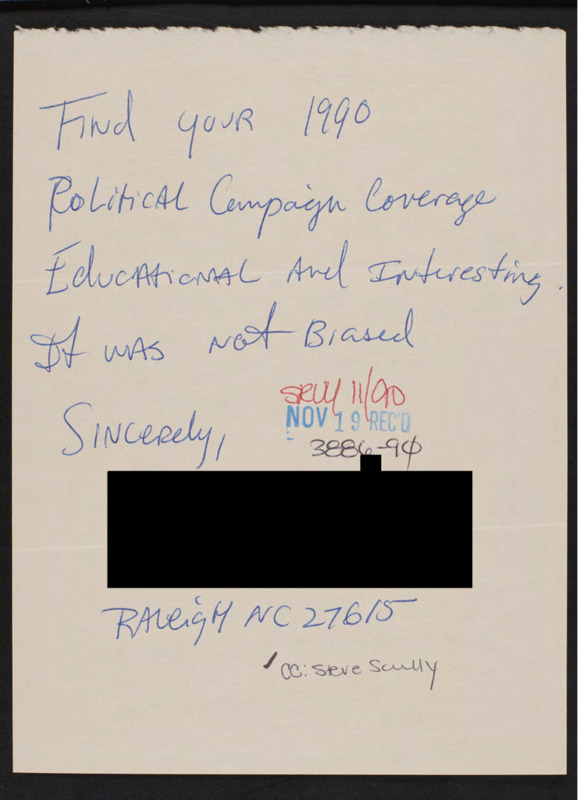 Find your 1990
Political Campaign Coverage
Educational And Interesting.
It was not Biased
Sincerely,
11/90
NOV 19 REC'D
3886-90
Raleigh NC 27615
✓ cc: Steve Scully